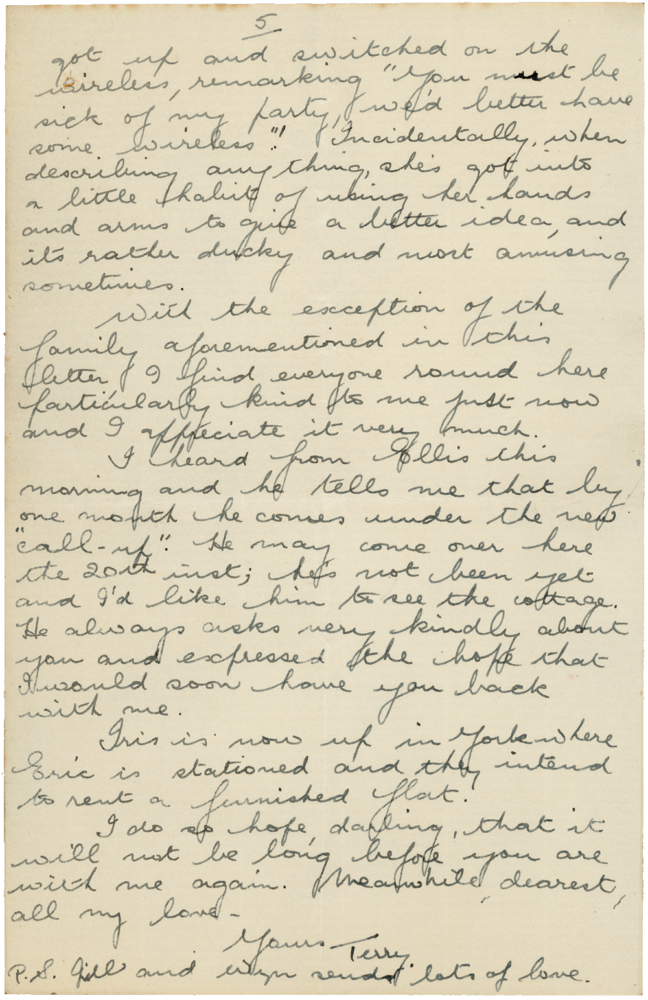 5
got up and switched on the
wireless, remarking "You must be
sick of my party, we'd better have
some wireless"! Incidentally, when
describing anything, she's got into
a little habit of using her hands
and arms to give a better idea, and
it's rather ducky and most amusing
sometimes.
With the exception of the
family aforementioned in this
letter, I find everyone round here
particularly kind to me just now
and I appreciate it very much.
I heard from Ellis this
morning and he tells me that by
one month he comes under the new
"call-up". He may come over here
the 20th inst; he's not been yet
and I'd like him to see the cottage.
He always asks very kindly about
you and expressed the hope that
I would soon have you back
with me.
Iris is now up in York where
Eric is stationed and they intend
to rent a furnished flat.
I do so hope, darling, that it
will not be long before you are
with me again. Meanwhile, dearest,
all my love -
Yours Terry
P.S. Jill and Wyn send lots of love.